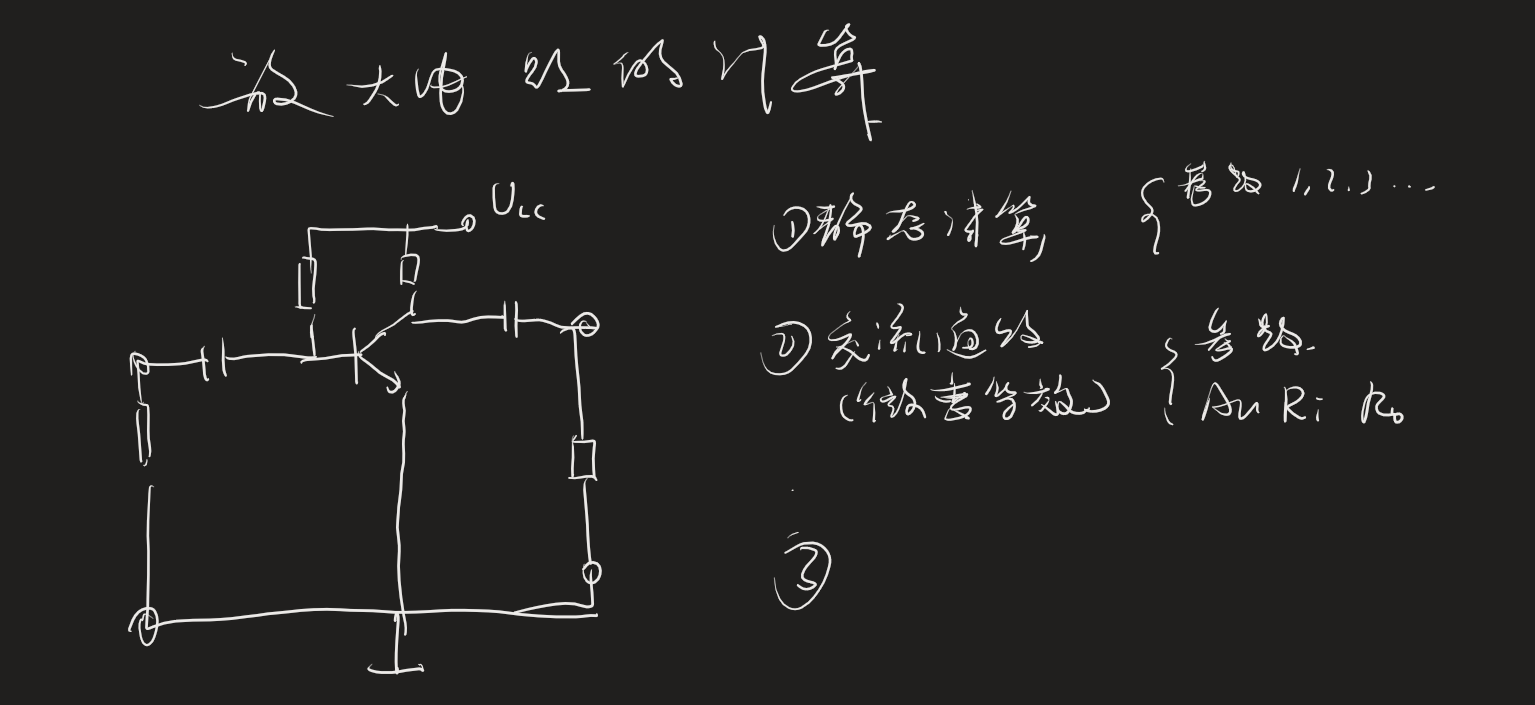 放大电路的计算
Ucc
①静态计算 { 参数 1,2,3 ...
② 交流通路 { 参数.
(微变等效) Au Ri Ro
③